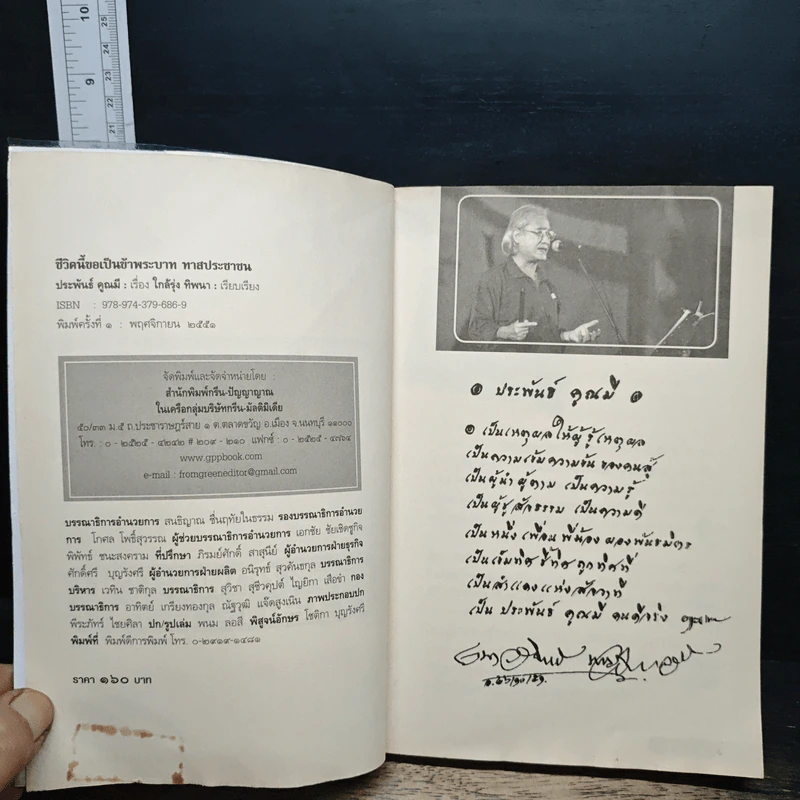 ชีวิตนี้ขอเป็นข้าพระบาท ทาสประชาชน
ประพันธ์ คูณมี : เรื่อง ใกล้รุ่ง ทิพนา : เรียบเรียง
ISBN : 978-974-379-686-9
พิมพ์ครั้งที่ ๑ : พฤศจิกายน ๒๕๕๑
จัดพิมพ์และจัดจำหน่ายโดย :
สำนักพิมพ์กรีน-ปัญญาญาณ
ในเครือกลุ่มบริษัทกรีน-มัลติมีเดีย
๕๐/๓๓ ม.๕ ถ.ประชาราษฎร์สาย ๑ ต.ตลาดขวัญ อ.เมือง จ.นนทบุรี ๑๑๐๐๐
โทร : ๐ - ๒๕๒๕ - ๔๒๔๒ # ๒๐๙ - ๒๑๐ แฟกซ์ : ๐ - ๒๕๒๕ - ๔๗๖๔
www.gppbook.com
e-mail : fromgreeneditor@gmail.com
บรรณาธิการอำนวยการ สนธิญาณ ชื่นฤทัยในธรรม รองบรรณาธิการอำนวย
การ โกศล โพธิ์สุวรรณ ผู้ช่วยบรรณาธิการอำนวยการ เอกชัย ชัยเชิดชูกิจ
พิพัทธ์ ชนะสงคราม ที่ปรึกษา ภิรมย์ศักดิ์ สาสุนีย์ ผู้อำนวยการฝ่ายธุรกิจ
ศักดิ์ศรี บุญรังศรี ผู้อำนวยการฝ่ายผลิต อนิรุทธ์ สุวคันธกุล บรรณาธิการ
บริหาร เวทิน ชาติกุล บรรณาธิการ สุวิชา สุชีวคุปต์ ไญยิกา เสือขำ กอง
บรรณาธิการ อาทิตย์ เกรียงทองกุล ณัฐวุฒิ แจ๊ดสูงเนิน ภาพประกอบปก
พีระภัทร์ ไชยศิลา ปก/รูปเล่ม พนม ลอสี พิสูจน์อักษร โชติกา บุญรังศรี
พิมพ์ที่ พิมพ์ดีการพิมพ์ โทร. ๐-๒๙๑๙-๑๔๘๑
ราคา ๑๖๐ บาท
10
9
25
24
23
22
21
ประพันธ์ คูณมี
เป็นเหตุผลให้ผู้รู้เหตุผล
เป็นความเข้มความข้นของคนสู้
เป็นผู้นำ ผู้ตาม เป็นความรู้
เป็นผู้ชูสัจธรรม เป็นความดี
เป็นหนึ่ง เพื่อน พี่น้อง ผองพันธมิตร
เป็นเข็มทิศชี้ทิศถูกทิศที่
เป็นสำแดงแห่งสัจวาที
เป็น ประพันธ์ คูณมี คนดีจริง